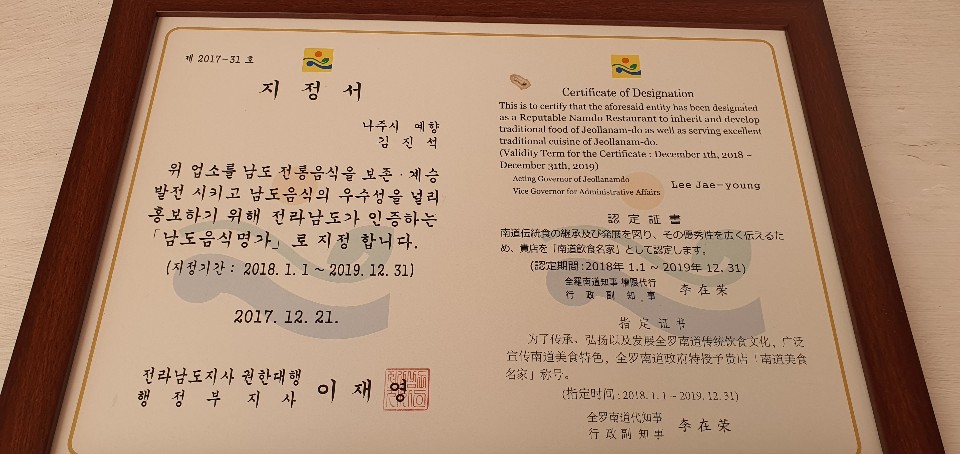 제 2017-31 호
지 정 서
나주시 예향
김 진 석
위 업소를 남도 전통음식을 보존·계승
발전 시키고 남도음식의 우수성을 널리
홍보하기 위해 전라남도가 인증하는
「남도음식명가」로 지정 합니다.
(지정기간 : 2018. 1. 1 ~ 2019. 12. 31)
2017. 12. 21.
전라남도지사 권한대행
행 정 부 지 사 이 재 영
Certificate of Designation
This is to certify that the aforesaid entity has been designated
as a Reputable Namdo Restaurant to inherit and develop
traditional food of Jeollanam-do as well as serving excellent
traditional cuisine of Jeollanam-do.
(Validity Term for the Certificate : December 1th, 2018 ~
December 31th, 2019)
Acting Governor of Jeollanamdo
Vice Governor for Administrative Affairs Lee Jae-young
認 定 証 書
南道伝統食の継承及び発展を図り、その優秀性を広く伝えるた
め、貴店を「南道飲食名家」として認定します。
(認定期間:2018年 1.1 ~ 2019年 12. 31)
全羅南道知事 権限代行
行 政 副 知 事 李 在 荣
指 定 证 书
为了传承、弘扬以及发展全罗南道传统饮食文化，广泛
宣传南道美食特色，全罗南道政府特授予贵店「南道美食
名家」称号。
(指定时间 : 2018. 1. 1 ~ 2019. 12. 31)
全罗南道代知事
行 政 副 知 事 李 在 荣